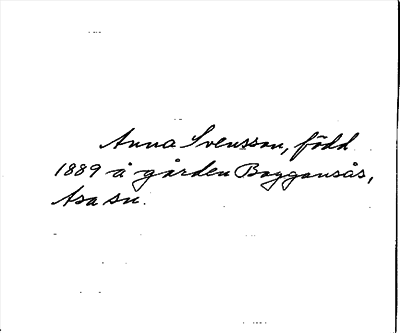 Anna Svensson, född
1889 å gården Boggansås,
Asa sn.